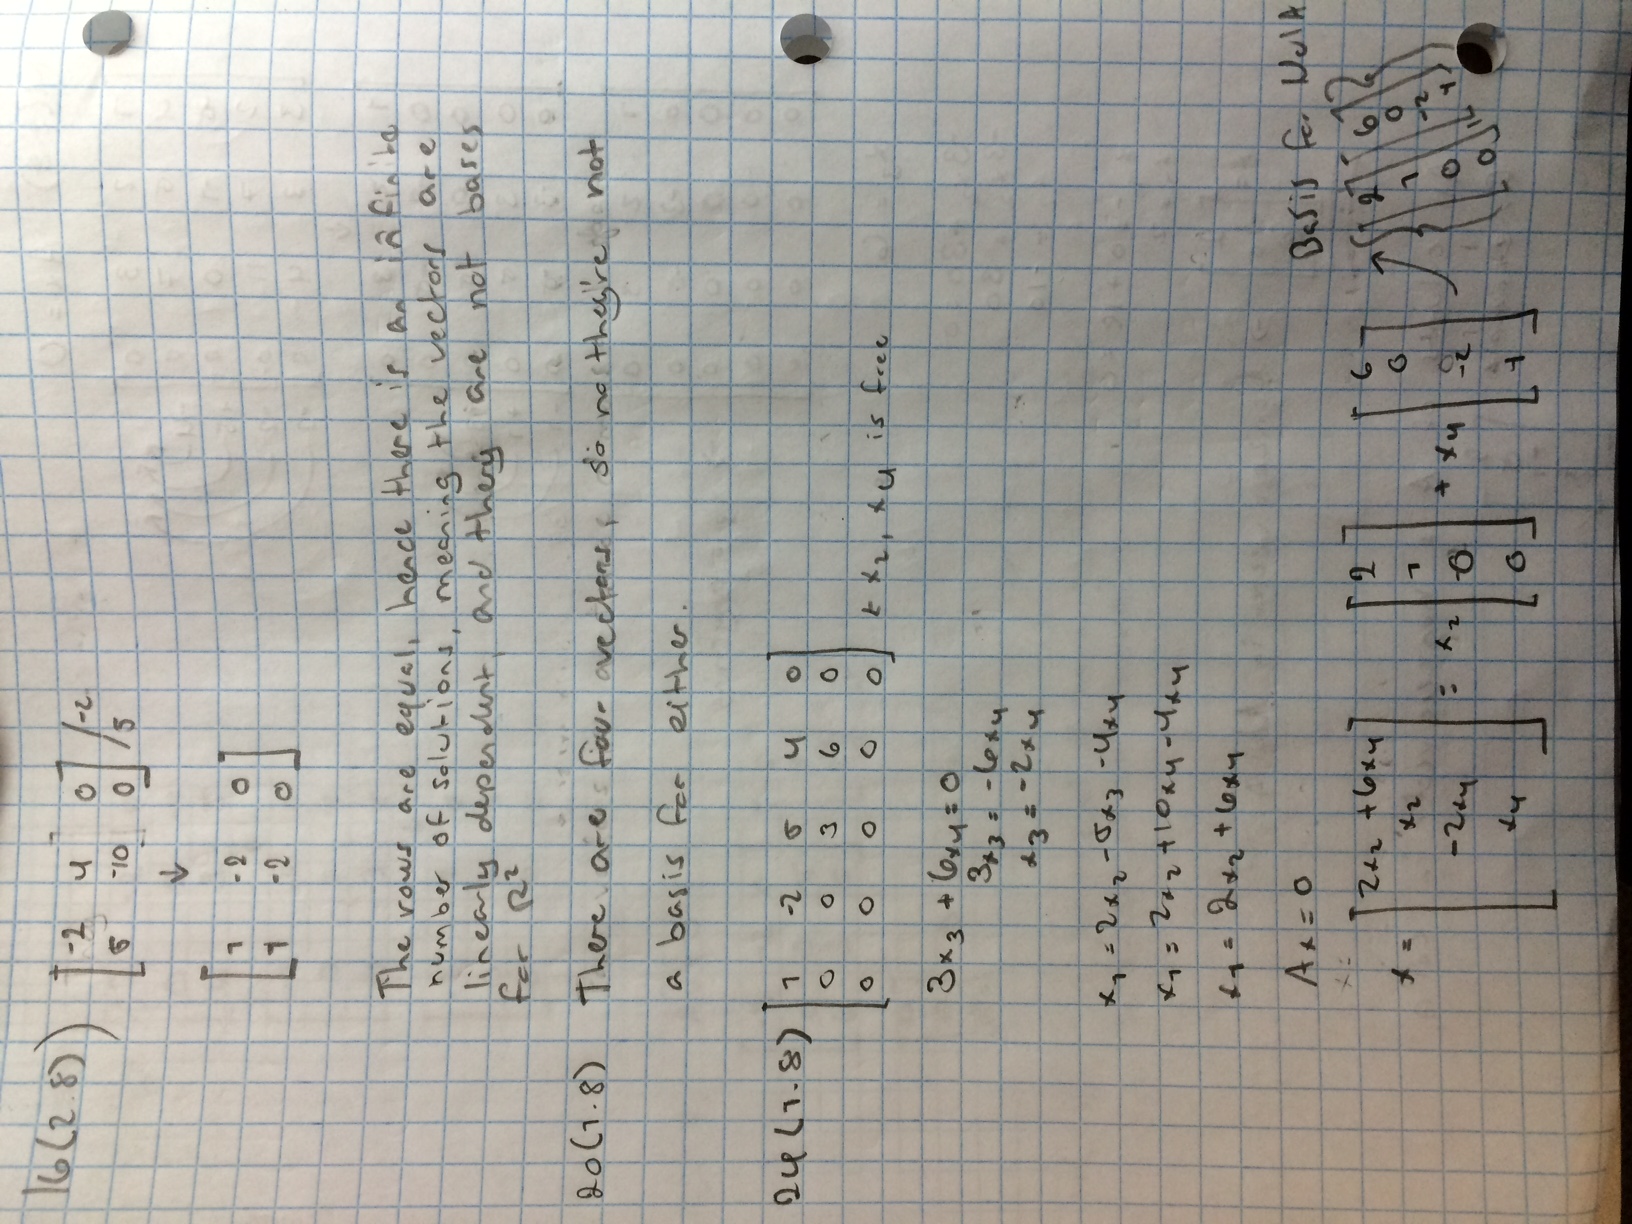 16(2.8)
-2 4 0 /-2
5 -10 0 /5
↓
1 -2 0
1 -2 0
The rows are equal, hence there is an infinite
number of solutions, meaning the vectors are
linearly dependent, and they are not bases
for R²
20(1.8) There are four vectors, so no they're not
a basis for either.
24(1.8) 1 -2 5 4 0
0 0 3 6 0
0 0 0 0 0 x₂, x₄ is free
3x₃ + 6x₄ = 0
3x₃ = -6x₄
x₃ = -2x₄
x₁ = 2x₂ - 5x₃ - 4x₄
x₁ = 2x₂ + 10x₄ - 4x₄
x₁ = 2x₂ + 6x₄
Ax = 0
Basis for NulA
x = [2x₂ + 6x₄, x₂, -2x₄, x₄] = x₂ [2, 1, 0, 0] + x₄ [6, 0, -2, 1] → {[2, 1, 0, 0], [6, 0, -2, 1]}